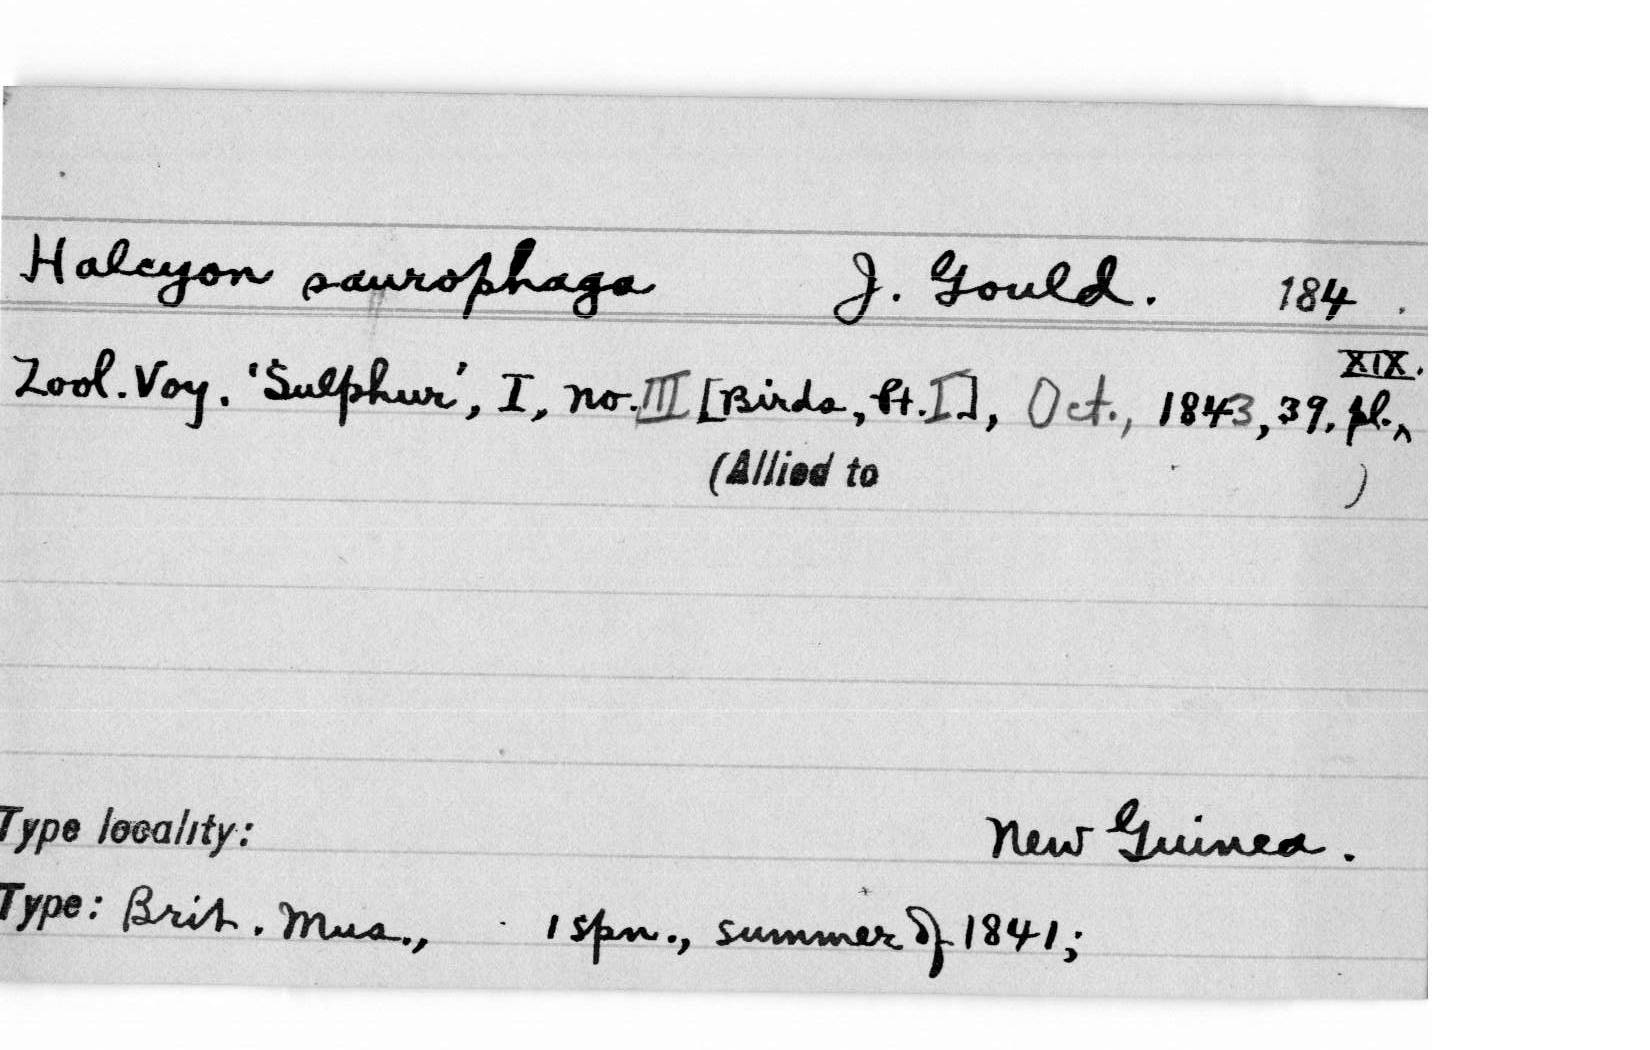 Halcyon saurophaga J. Gould. 184 .
Zool. Voy. 'Sulphur', I, no. III [Birds, Pt. I], Oct., 1843, 39, pl. ^ XIX.
(Allied to )
Type locality: New Guinea.
Type: Brit. Mus., 1 spn., summer of 1841;